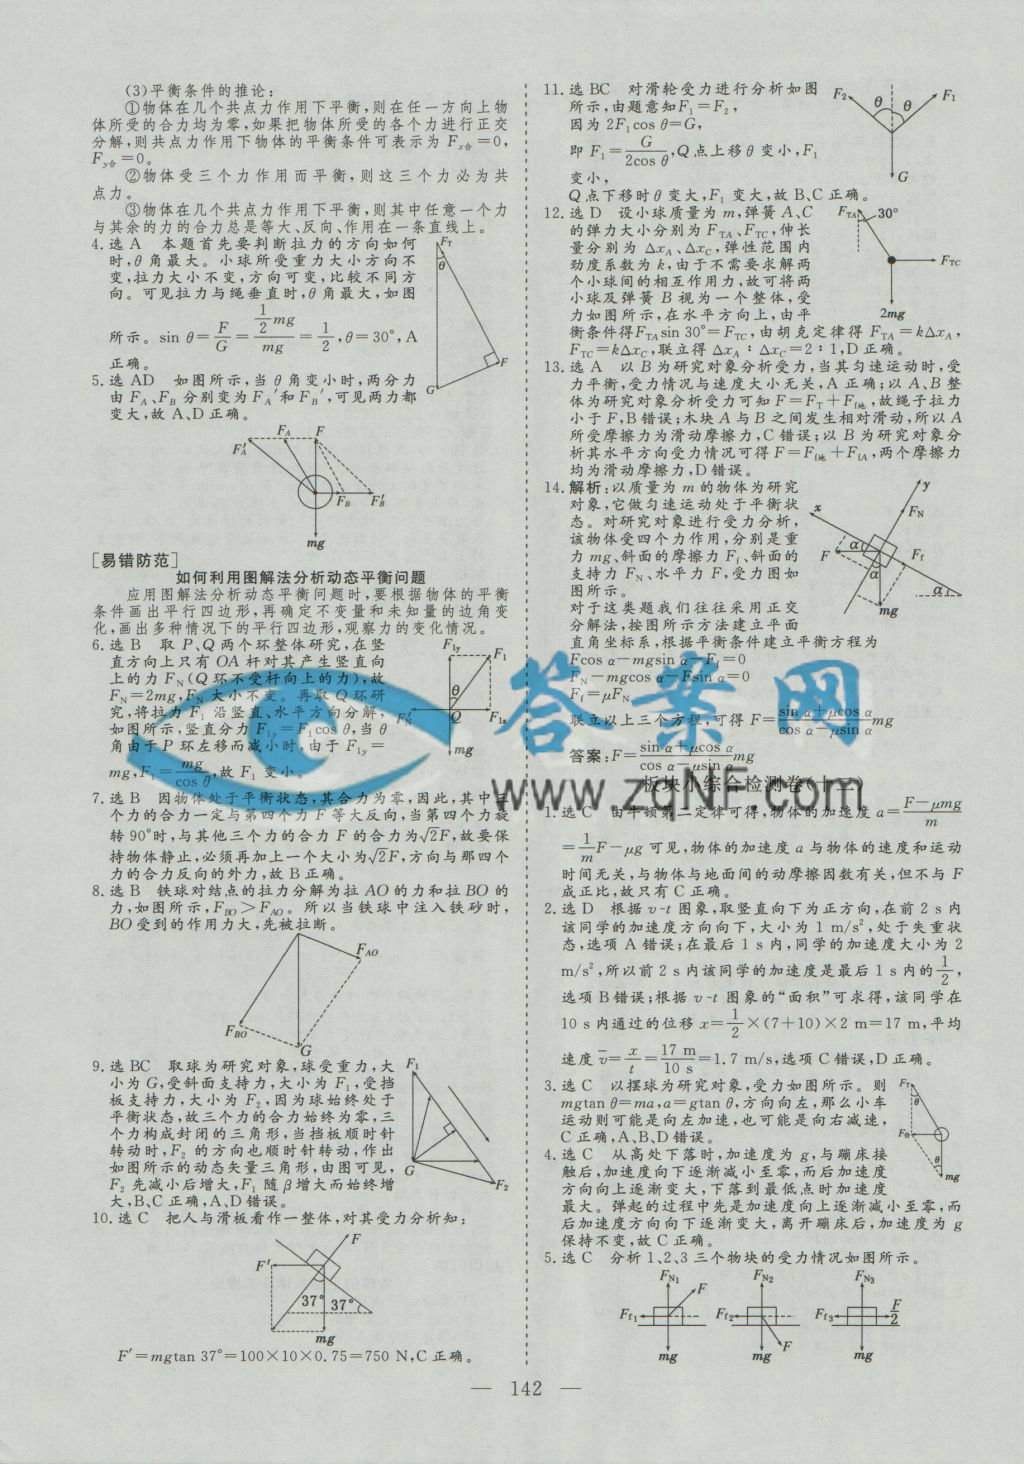 (3)平衡条件的推论:
①物体在几个共点力作用下平衡,则在任一方向上物
体所受的合力均为零,如果把物体所受的各个力进行正交
分解,则共点力作用下物体的平衡条件可表示为 Fx合=0,
Fy合=0。
②物体受三个力作用而平衡,则这三个力必为共
点力。
③物体在几个共点力作用下平衡,则其中任意一个力
与其余的力的合力总是等大、反向、作用在一条直线上。
4. 选 A 本题首先要判断拉力的方向如何
时,θ角最大。小球所受重力大小方向不
变,拉力大小不变,方向可变,比较不同方
向。可见拉力与绳垂直时,θ角最大,如图
所示。sin θ=F/G=(1/2 mg)/mg=1/2,θ=30°,A
正确。
FT
θ
F
G
5. 选 AD 如图所示,当θ角变小时,两分力
由 FA、FB 分别变为 FA′和 FB′,可见两力都
变大,故 A、D正确。
FA′ FA F
FB FB′
mg
[易错防范]
如何利用图解法分析动态平衡问题
应用图解法分析动态平衡问题时,要根据物体的平衡
条件画出平行四边形,再确定不变量和未知量的边角变
化,画出多种情况下的平行四边形,观察力的变化情况。
6. 选 B 取 P、Q 两个环整体研究,在竖
直方向上只有 OA 杆对其产生竖直向
上的力 FN(Q 环不受杆向上的力),故
FN=2mg,FN 大小不变。再取 Q 环研
究,将拉力 F1 沿竖直、水平方向分解,
如图所示,竖直分力 F1y=F1cos θ,当 θ
角由于 P 环左移而减小时,由于 F1y=
mg,F1=mg/cos θ,故 F1 变小。
F1y F1
θ
FN Q F1x
mg
7. 选 B 因物体处于平衡状态,其合力为零,因此,其中三
个力的合力一定与第四个力 F 等大反向,当第四个力旋
转 90°时,与其他三个力的合力 F 的合力为√2F,故要保
持物体静止,必须再加上一个大小为√2F,方向与那四个
力的合力反向的外力,故 B 正确。
8. 选 B 铁球对结点的拉力分解为拉 AO 的力和拉 BO 的
力,如图所示,FBO>FAO。所以当铁球中注入铁砂时,
BO 受到的作用力大,先被拉断。
FAO
FBO
G
9. 选 BC 取球为研究对象,球受重力,大
小为 G,受斜面支持力,大小为 F1,受挡
板支持力,大小为 F2,因为球始终处于
平衡状态,故三个力的合力始终为零,三
个力构成封闭的三角形,当挡板顺时针
转动时,F2 的方向也顺时针转动,作出
如图所示的动态矢量三角形,由图可见,
F2 先减小后增大,F1 随β增大而始终增
大,B、C 正确,A、D错误。
F1
G
F2
10. 选 C 把人与滑板看作一整体,对其受力分析知:
F
F′
37° 37°
mg
F′=mgtan 37°=100×10×0.75=750 N,C 正确。
11. 选 BC 对滑轮受力进行分析如图
所示,由题意知F1=F2,
因为 2F1cos θ=G,
即 F1=G/2cos θ,Q点上移 θ 变小,F1
变小,
Q 点下移时 θ 变大,F1 变大,故 B、C 正确。
F2 θ θ F1
G
12. 选 D 设小球质量为 m,弹簧 A、C
的弹力大小分别为 FTA、FTC,伸长
量分别为 ΔxA、ΔxC,弹性范围内
劲度系数为 k,由于不需要求解两
个小球间的相互作用力,故可将两
小球及弹簧 B 视为一个整体,受
力如图所示,在水平方向上,由平
衡条件得FTAsin 30°=FTC,由胡克定律得 FTA=kΔxA,
FTC=kΔxC,联立得 ΔxA∶ΔxC=2∶1,D正确。
FTA 30°
FTC
2mg
13. 选 A 以 B 为研究对象分析受力,当其匀速运动时,受
力平衡,受力情况与速度大小无关,A 正确;以 A、B 整
体为研究对象分析受力可知 F=FT+Ff地,故绳子拉力
小于 F,B错误;木块 A 与 B 之间发生相对滑动,所以 A
所受摩擦力为滑动摩擦力,C 错误;以 B 为研究对象分
析其水平方向受力情况可得 F=Ff地+FfA,两个摩擦力
均为滑动摩擦力,D错误。
14. 解析:以质量为 m 的物体为研究
对象,它做匀速运动处于平衡状
态。对研究对象进行受力分析,
该物体受四个力作用,分别是重
力 mg、斜面的摩擦力 Ff、斜面的
支持力 FN、水平力 F,受力图如
图所示。
对于这类题我们往往采用正交
分解法,按图所示方法建立平面
直角坐标系,根据平衡条件建立平衡方程为
Fcos α-mgsin α-Ff=0
FN-mgcos α-Fsin α=0
Ff=μFN
联立以上三个方程,可得 F=(sin α+μcos α)/(cos α-μsin α)mg
答案:F=(sin α+μcos α)/(cos α-μsin α)mg
y
x FN
F α Ff
α
mg α
板块小综合检测卷(十二)
1. 选 C 由牛顿第二定律可得,物体的加速度 a=(F-μmg)/m
=1/m F-μg 可见,物体的加速度 a 与物体的速度和运动
时间无关,与物体与地面间的动摩擦因数有关,但不与 F
成正比,故只有 C 正确。
2. 选 D 根据 v-t 图象,取竖直向下为正方向,在前 2 s 内
该同学的加速度方向向下,大小为 1 m/s²,处于失重状
态,选项 A 错误;在最后 1 s 内,同学的加速度大小为 2
m/s²,所以前 2 s 内该同学的加速度是最后 1 s 内的 1/2,
选项 B错误;根据 v-t 图象的“面积”可求得,该同学在
10 s 内通过的位移 x=1/2×(7+10)×2 m=17 m,平均
速度 v̄=x/t=17 m/10 s=1.7 m/s,选项 C 错误,D 正确。
3. 选 C 以摆球为研究对象,受力如图所示。则
mgtan θ=ma,a=gtan θ,方向向左,那么小车
运动则可能是向左加速,也可能是向右减速,
C 正确,A、B、D 错误。
FT
θ
F合
θ
mg
4. 选 C 从高处下落时,加速度为 g,与蹦床接
触后,加速度向下逐渐减小至零,而后加速度
方向向上逐渐变大,下落到最低点时加速度
最大。弹起的过程中先是加速度向上逐渐减小至零,而
后加速度方向向下逐渐变大,离开蹦床后,加速度为 g
保持不变,故 C 正确。
5. 选 C 分析 1、2、3 三个物块的受力情况如图所示。
FN1 FN2 FN3
F
Ff1 Ff2 Ff3 F/2
F
mg mg mg
— 142 —
答案网
www.zqNF.com